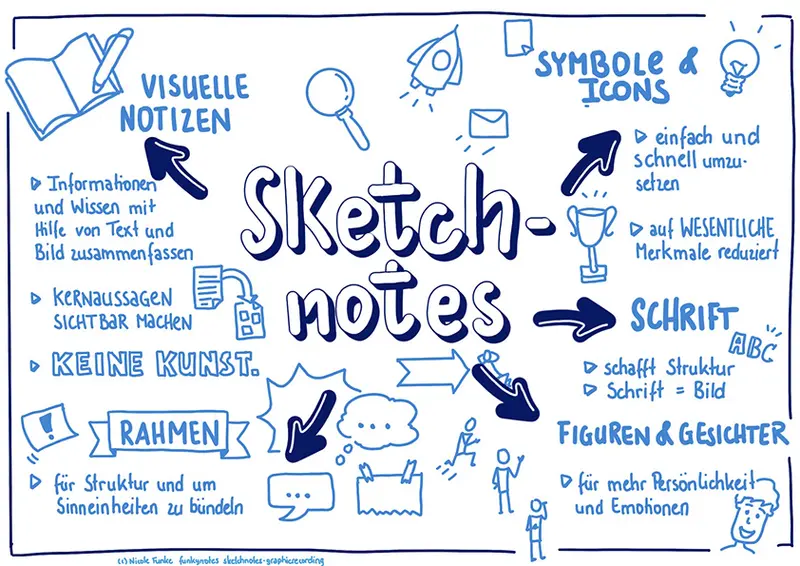 Sketch-
notes
VISUELLE
NOTIZEN
Informationen
und Wissen mit
Hilfe von Text und
Bild zusammenfassen
KERNAUSSAGEN
SICHTBAR MACHEN
KEINE KUNST.
!
RAHMEN
für Struktur und um
Sinneinheiten zu bündeln
SYMBOLE &
ICONS
einfach und
schnell umzu-
setzen
auf WESENTLICHE
Merkmale reduziert
SCHRIFT
ABC
schafft Struktur
Schrift = Bild
FIGUREN & GESICHTER
für mehr Persönlichkeit
und Emotionen
(c) Nicole Funke funkynotes sketchnotes-graphicrecording